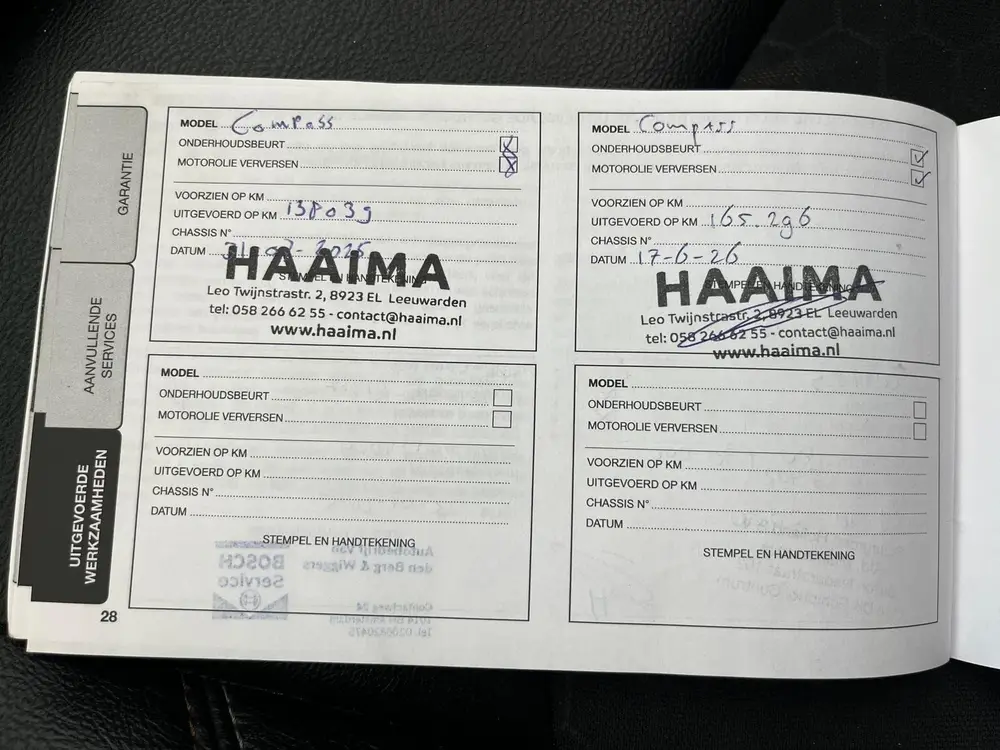 GARANTIE
AANVULLENDE
SERVICES
UITGEVOERDE
WERKZAAMHEDEN
28
MODEL Compass
ONDERHOUDSBEURT
MOTOROLIE VERVERSEN
VOORZIEN OP KM
UITGEVOERD OP KM
CHASSIS N°
DATUM
STEMPEL EN HANDTEKENING
HAAIMA
Leo Twijnstrastr. 2, 8923 EL Leeuwarden
tel: 058 266 62 55 - contact@haaima.nl
www.haaima.nl
MODEL Compass
ONDERHOUDSBEURT
MOTOROLIE VERVERSEN
VOORZIEN OP KM
UITGEVOERD OP KM 165.296
CHASSIS N°
DATUM 17-6-26
STEMPEL EN HANDTEKENING
HAAIMA
Leo Twijnstrastr. 2, 8923 EL Leeuwarden
tel: 058 266 62 55 - contact@haaima.nl
www.haaima.nl
MODEL
ONDERHOUDSBEURT
MOTOROLIE VERVERSEN
VOORZIEN OP KM
UITGEVOERD OP KM
CHASSIS N°
DATUM
STEMPEL EN HANDTEKENING
MODEL
ONDERHOUDSBEURT
MOTOROLIE VERVERSEN
VOORZIEN OP KM
UITGEVOERD OP KM
CHASSIS N°
DATUM
STEMPEL EN HANDTEKENING
BOSCH
Service
Autobedrijf van
den Berg & Wiggers